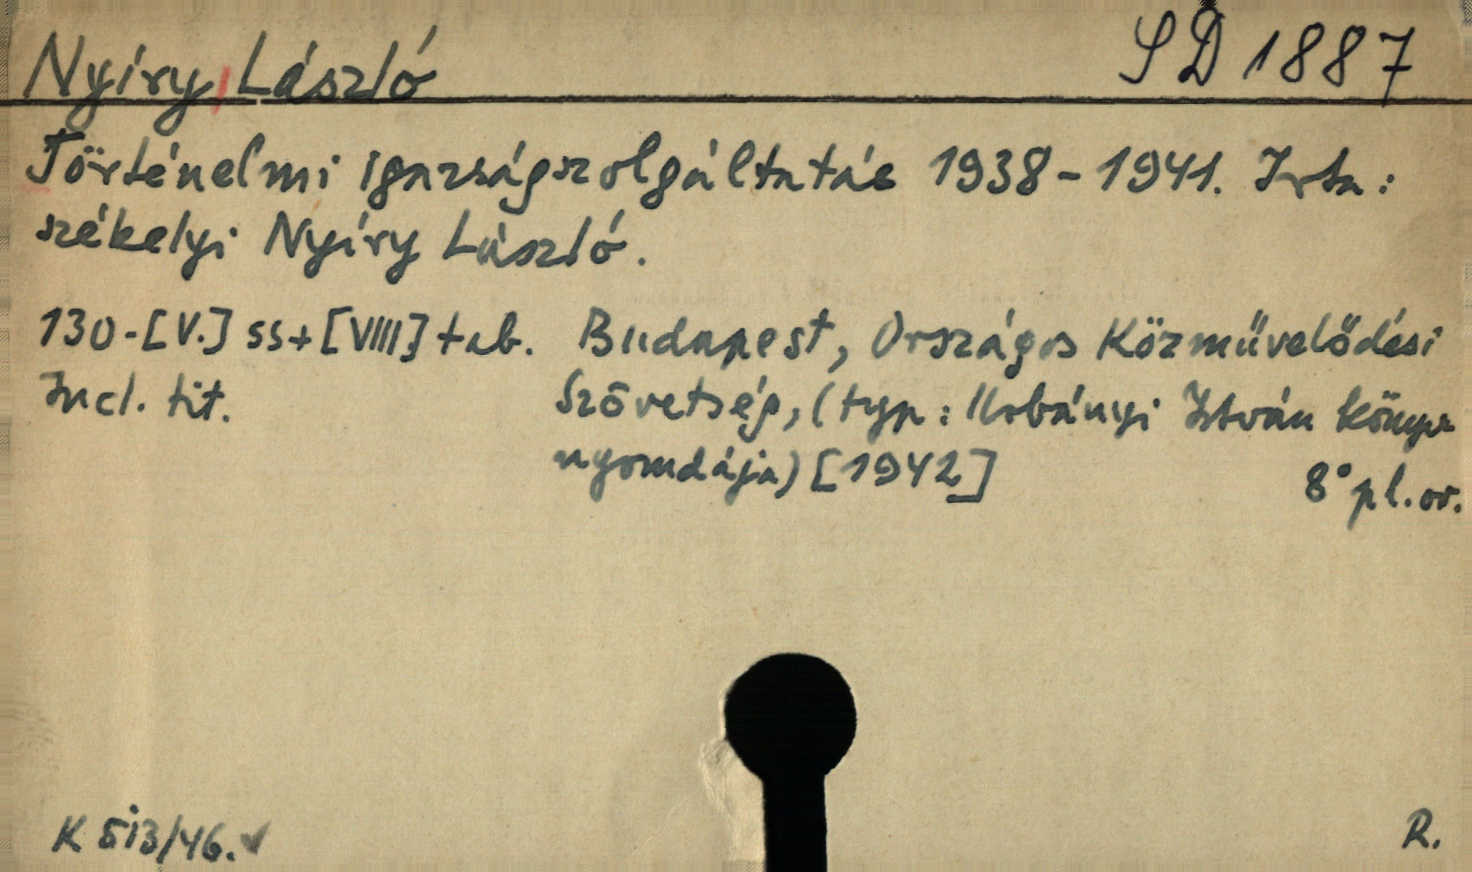 Nyíry, László
SD 1887
Történelmi igazságszolgáltatás 1938-1941. Irta:
székelyi Nyíry László.
130-[V.] ss+[VIII] tab. Budapest, Országos Közművelődési
Incl. tit. Szövetség, (typ: Urbányi István könyv
nyomdája) [1942] 8° pl. or.
K 513/46.
R.